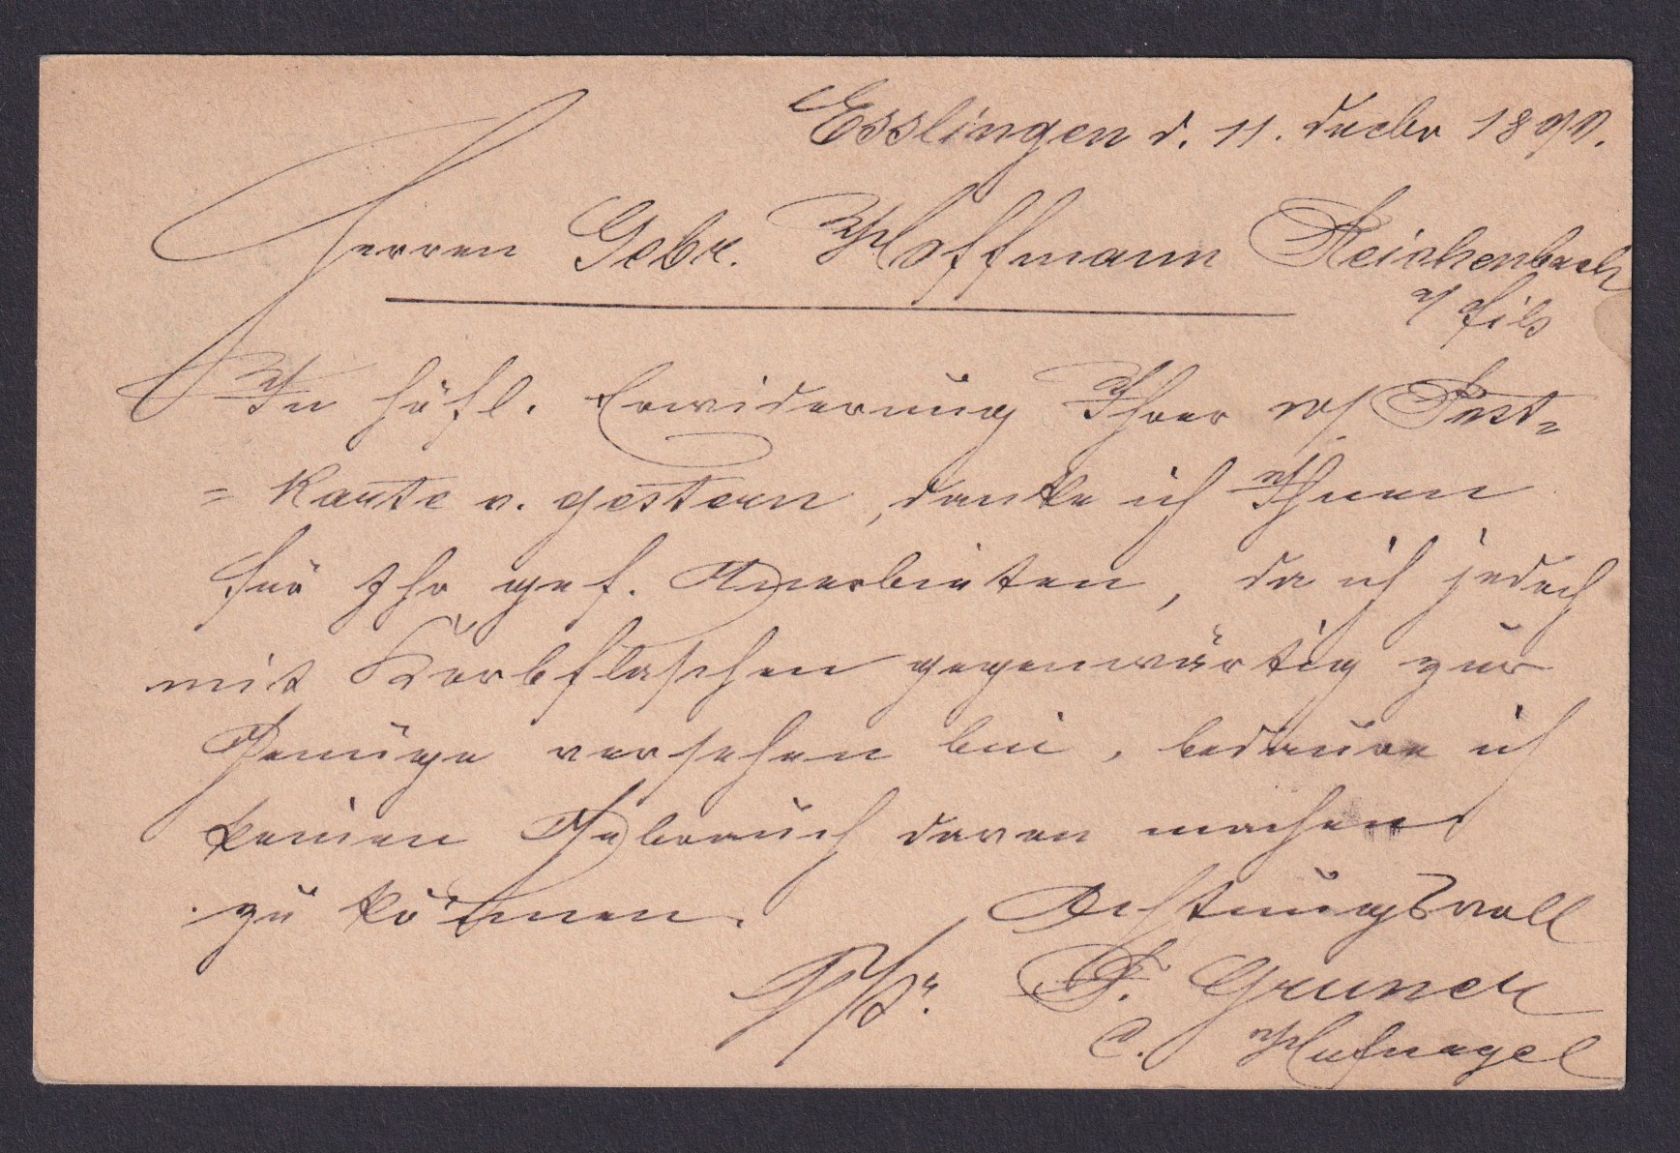 Esslingen d. 11. Decbr 1890.
Herren Gebr. Hoffmann Reichenbach
a/ Fils
In höfl. Erwiderung Ihrer w/ Post-
= Karte v. gestern, danke ich Ihnen
für Ihr gef. Anerbieten, da ich jedoch
mit Korbflaschen gegenwärtig zur
Genüge versehen bin, bedaure ich
keinen Gebrauch davon machen
zu können.
Achtungsvoll
F. Gruner
C. Hufnagel